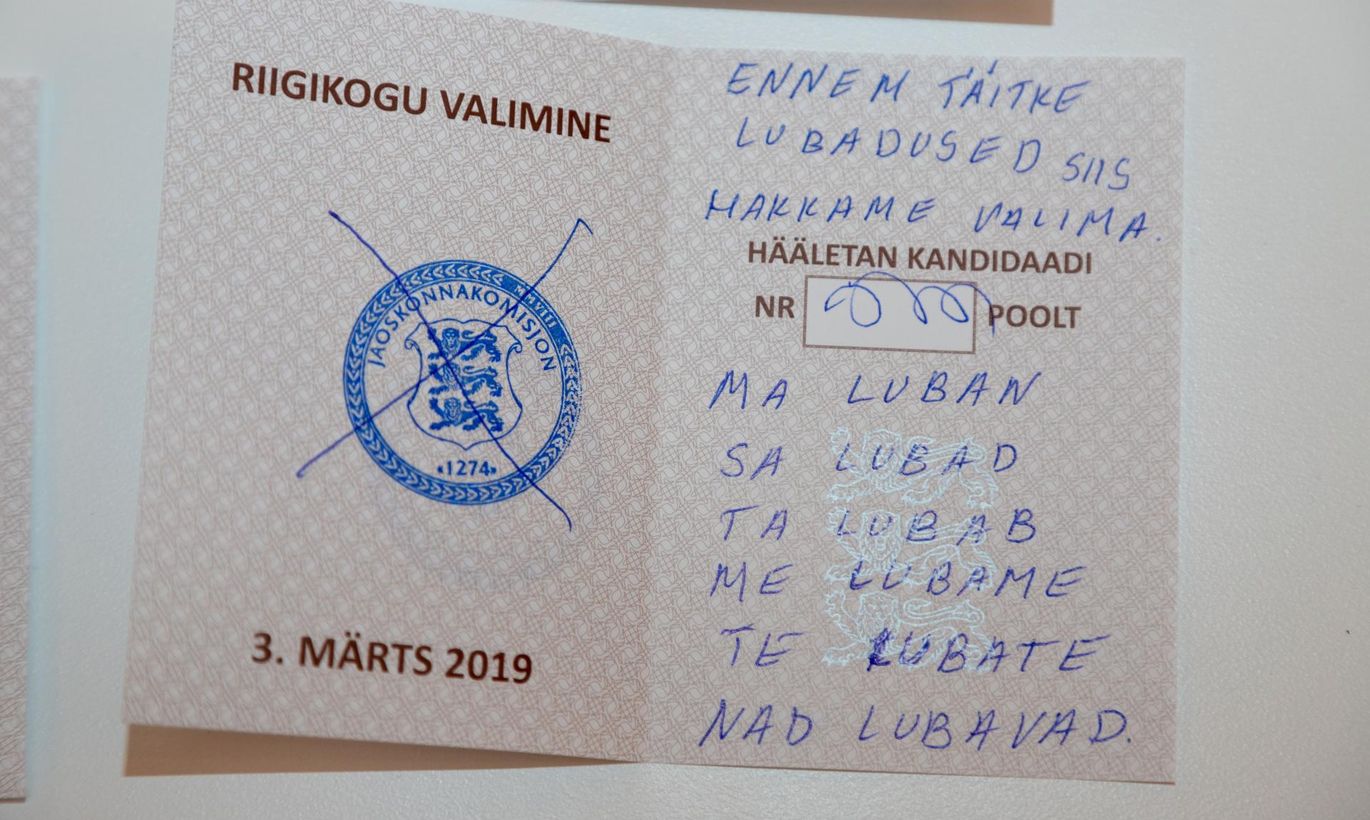 RIIGIKOGU VALIMINE
JAOSKONNAKOMISJON
1274
3. MÄRTS 2019
ENNEM TÄITKE
LUBADUSED SIIS
HAKKAME VALIMA.
HÄÄLETAN KANDIDAADI
NR POOLT
MA LUBAN
SA LUBAD
TA LUBAB
ME LUBAME
TE LUBATE
NAD LUBAVAD.